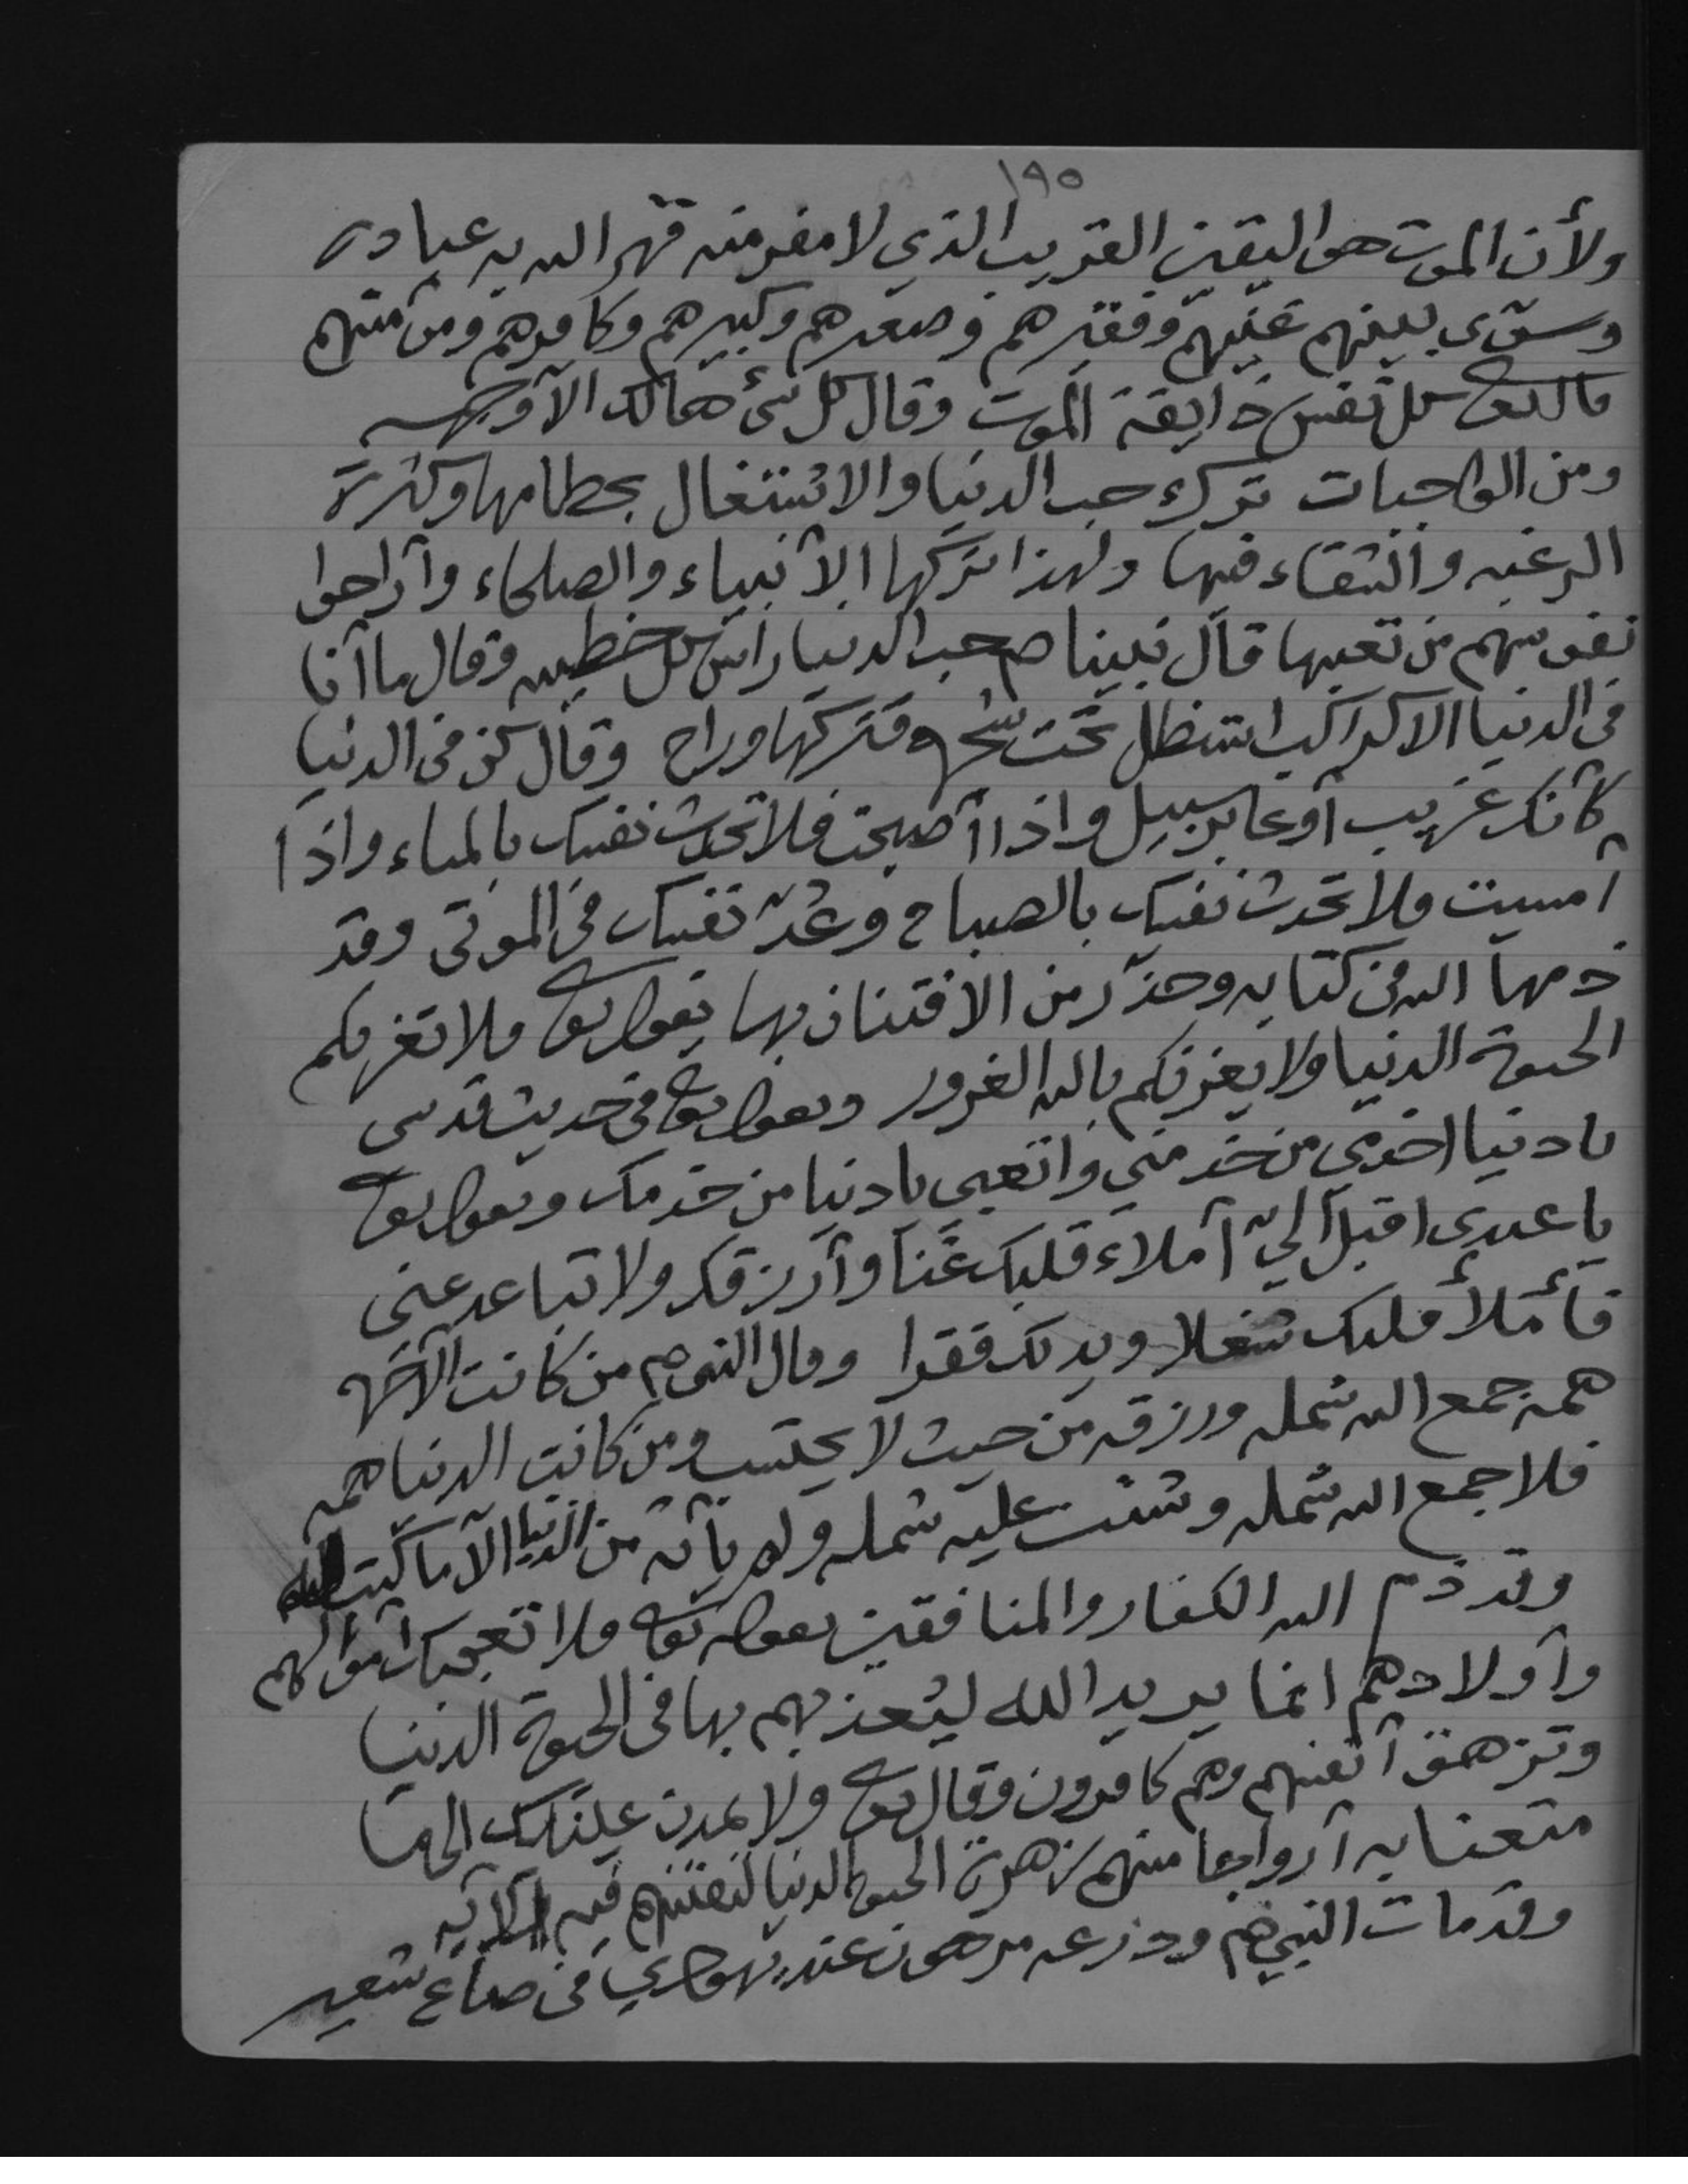 ١٩٥
ولأن الموت هو اليقين القريب الذي لا مفر منه قهر الله به عباده
وسوّى بينهم غنيّهم وفقيرهم وصغيرهم وكبيرهم وكافرهم ومؤمنهم
قال تعالى كل نفس ذايقة الموت وقال كل شئ هالك الآ وجهه
ومن الواجبات ترك حب الدنيا والاشتغال بحطامها وكثرة
الرغبه والشقاء فيها ولهذا تركها الأنبياء والصلحاء وأراحوا
نفوسهم من تعبها قال نبينا ص حب الدنيا راس كل خطيه وقال ما أنا
في الدنيا الا كراكب استظل تحت شجره فتركها وراح وقال كن في الدنيا
كأنك غريب أو عابر سبيل واذا أصبحت فلا تحدث نفسك بالمساء واذا
أمسيت فلا تحدث نفسك بالصباح وعُدّ نفسك في الموتى وقد
ذمها الله في كتابه وحذّر من الافتنان بها بقوله تعالى فلا تغرنكم
الحيوة الدنيا ولا يغرنكم بالله الغرور وبقوله تعالى في حديث قدسي
يا دنيا اخدمي من خدمني واتعبي يا دنيا من خدمك وبقوله تعالى
يا عبدي اقبل اليّ أملاء قلبك غنًا وأرزقك ولا تباعد عني
فأملأ قلبك شغلا ويديك فقرا وقال النبي ص من كانت الآخره
همه جمع الله شمله ورزقه من حيث لا يحتسب ومن كانت الدنيا همه
فلا جمع الله شمله وشتت عليه شمله ولم يأته من الدنيا الآ ما كتب له
وقد ذم الله الكفار والمنافقين بقوله تعالى فلا تعجبك أموالهم
وأولادهم انما يريد الله ليُعذبهم بها في الحيوة الدنيا
وتزهق أنفسهم وهم كافرون وقال تعالى ولا تمدن عينيك الى ما
متعنا به أزواجا منهم زهرة الحيوة الدنيا لنفتنهم فيه الآيه
وقد مات النبي ص ودرعه مرهون عند يهودي في صاع شعير